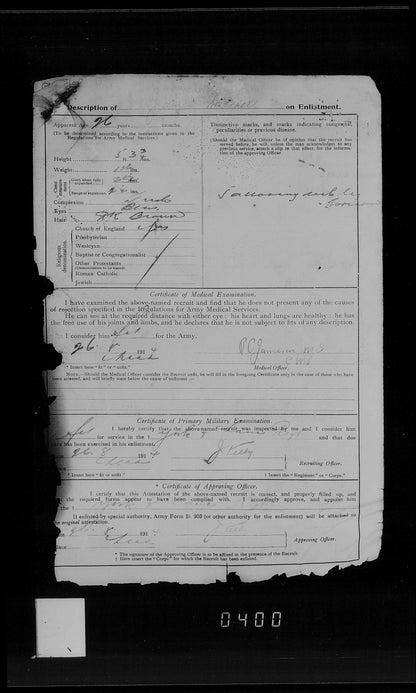 Description of on Enlistment.
Apparent age 26 years months.
(To be determined according to the instructions given in the
Regulations for Army Medical Services.)
Distinctive marks, and marks indicating congenital
peculiarities or previous disease.
(Should the Medical Officer be of opinion that the recruit has
served before, he will, unless the man acknowledges to any
previous service, attach a slip to that effect, for the information
of the approving Officer.
Height 5 ft. 3
Weight lbs.
Chest measurement
Girth when fully expanded
Range of expansion 2
Complexion Fresh
Eyes Blue
Hair DK Brown
Religious denomination.
Church of England yes
Presbyterian
Wesleyan
Baptist or Congregationalist
Other Protestants
(Denomination to be stated)
Roman Catholic
Jewish
Certificate of Medical Examination.
I have examined the above-named recruit and find that he does not present any of the causes
of rejection specified in the Regulations for Army Medical Services.
He can see at the required distance with either eye; his heart and lungs are healthy; he has
the free use of his joints and limbs, and he declares that he is not subject to fits of any description.
I consider him fit for the Army.
26. 8 1914
Medical Officer.
* Insert here "fit" or "unfit."
NOTE.—Should the Medical Officer consider the Recruit unfit, he will fill in the foregoing Certificate only in the case of those who have
been attested, and will briefly state below the cause of unfitness :—
Certificate of Primary Military Examination.
I hereby certify that the above-named recruit was inspected by me and I consider him
fit for service in the † York & and that due
care has been exercised in his enlistment.
26. 8 1914
Recruiting Officer.
* Insert here "fit or unfit."
† Insert the "Regiment" or "Corps."
* Certificate of Approving Officer.
I certify that this Attestation of the above-named recruit is correct, and properly filled up, and
the required forms appear to have been complied with. I accordingly approve, and appoint him
to the † York
If enlisted by special authority, Army Form B. 203 (or other authority for the enlistment) will be attached to
the original attestation.
191
Place
Approving Officer.
* The signature of the Approving Officer is to be affixed in the presence of the Recruit.
† Here insert the "Corps" for which the Recruit has been enlisted.
0400